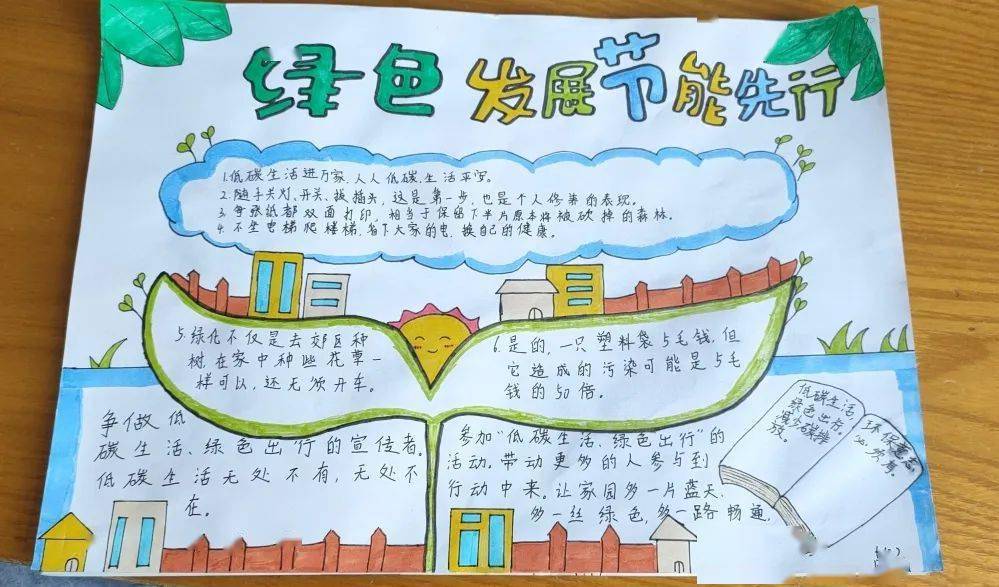 绿色发展节能先行
1.低碳生活进万家,人人低碳生活平常。
2.随手关灯、开关、拔插头,这是第一步,也是个人修养的表现。
3.每张纸都双面打印,相当于保留下半片原本将被砍掉的森林。
4.不坐电梯爬楼梯,省下大家的电,换自己的健康。
5.绿化不仅是去郊区种
树,在家中种些花草一
样可以,还无须开车。
6.是的,一只塑料袋5毛钱,但
它造成的污染可能是5毛
钱的50倍。
争做低
碳生活、绿色出行的宣传者。
低碳生活无处不有,无处不
在。
参加“低碳生活、绿色出行”的
活动,带动更多的人参与到
行动中来。让家园多一片蓝天,
多一丝绿色,多一路畅通,
低碳生活
绿色出行。
减少碳排
放。
环保意